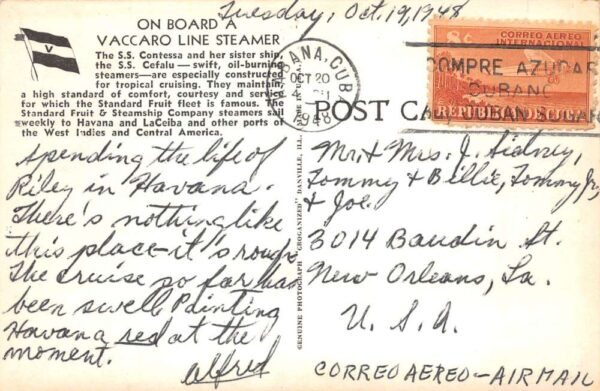 Tuesday, Oct. 19, 1948
ON BOARD A
VACCARO LINE STEAMER
V
The S.S. Contessa and her sister ship,
the S.S. Cefalu — swift, oil-burning
steamers—are especially constructed
for tropical cruising. They maintain
a high standard of comfort, courtesy and service
for which the Standard Fruit fleet is famous. The
Standard Fruit & Steamship Company steamers sail
weekly to Havana and LaCeiba and other ports of
the West Indies and Central America.
HABANA, CUBA
OCT 20
1948
8¢ CORREO AEREO
INTERNACIONAL
COMPRE AZUCAR
CUBANO
CUBAN SUGAR
REPUBLICA DE CUBA
POST CA
GENUINE PHOTOGRAPH "GROGANIZED" DANVILLE, ILL.
Spending the life of
Riley in Havana.
There's nothing like
this place—it's rough.
The cruise so far has
been swell. Painting
Havana red at the
moment.
Alfred
Mr. & Mrs. J. Sidney,
Tommy & Billie, Tommy Jr,
& Joe.
3014 Baudin St.
New Orleans, La.
U. S. A.
CORREO AEREO—AIR MAIL